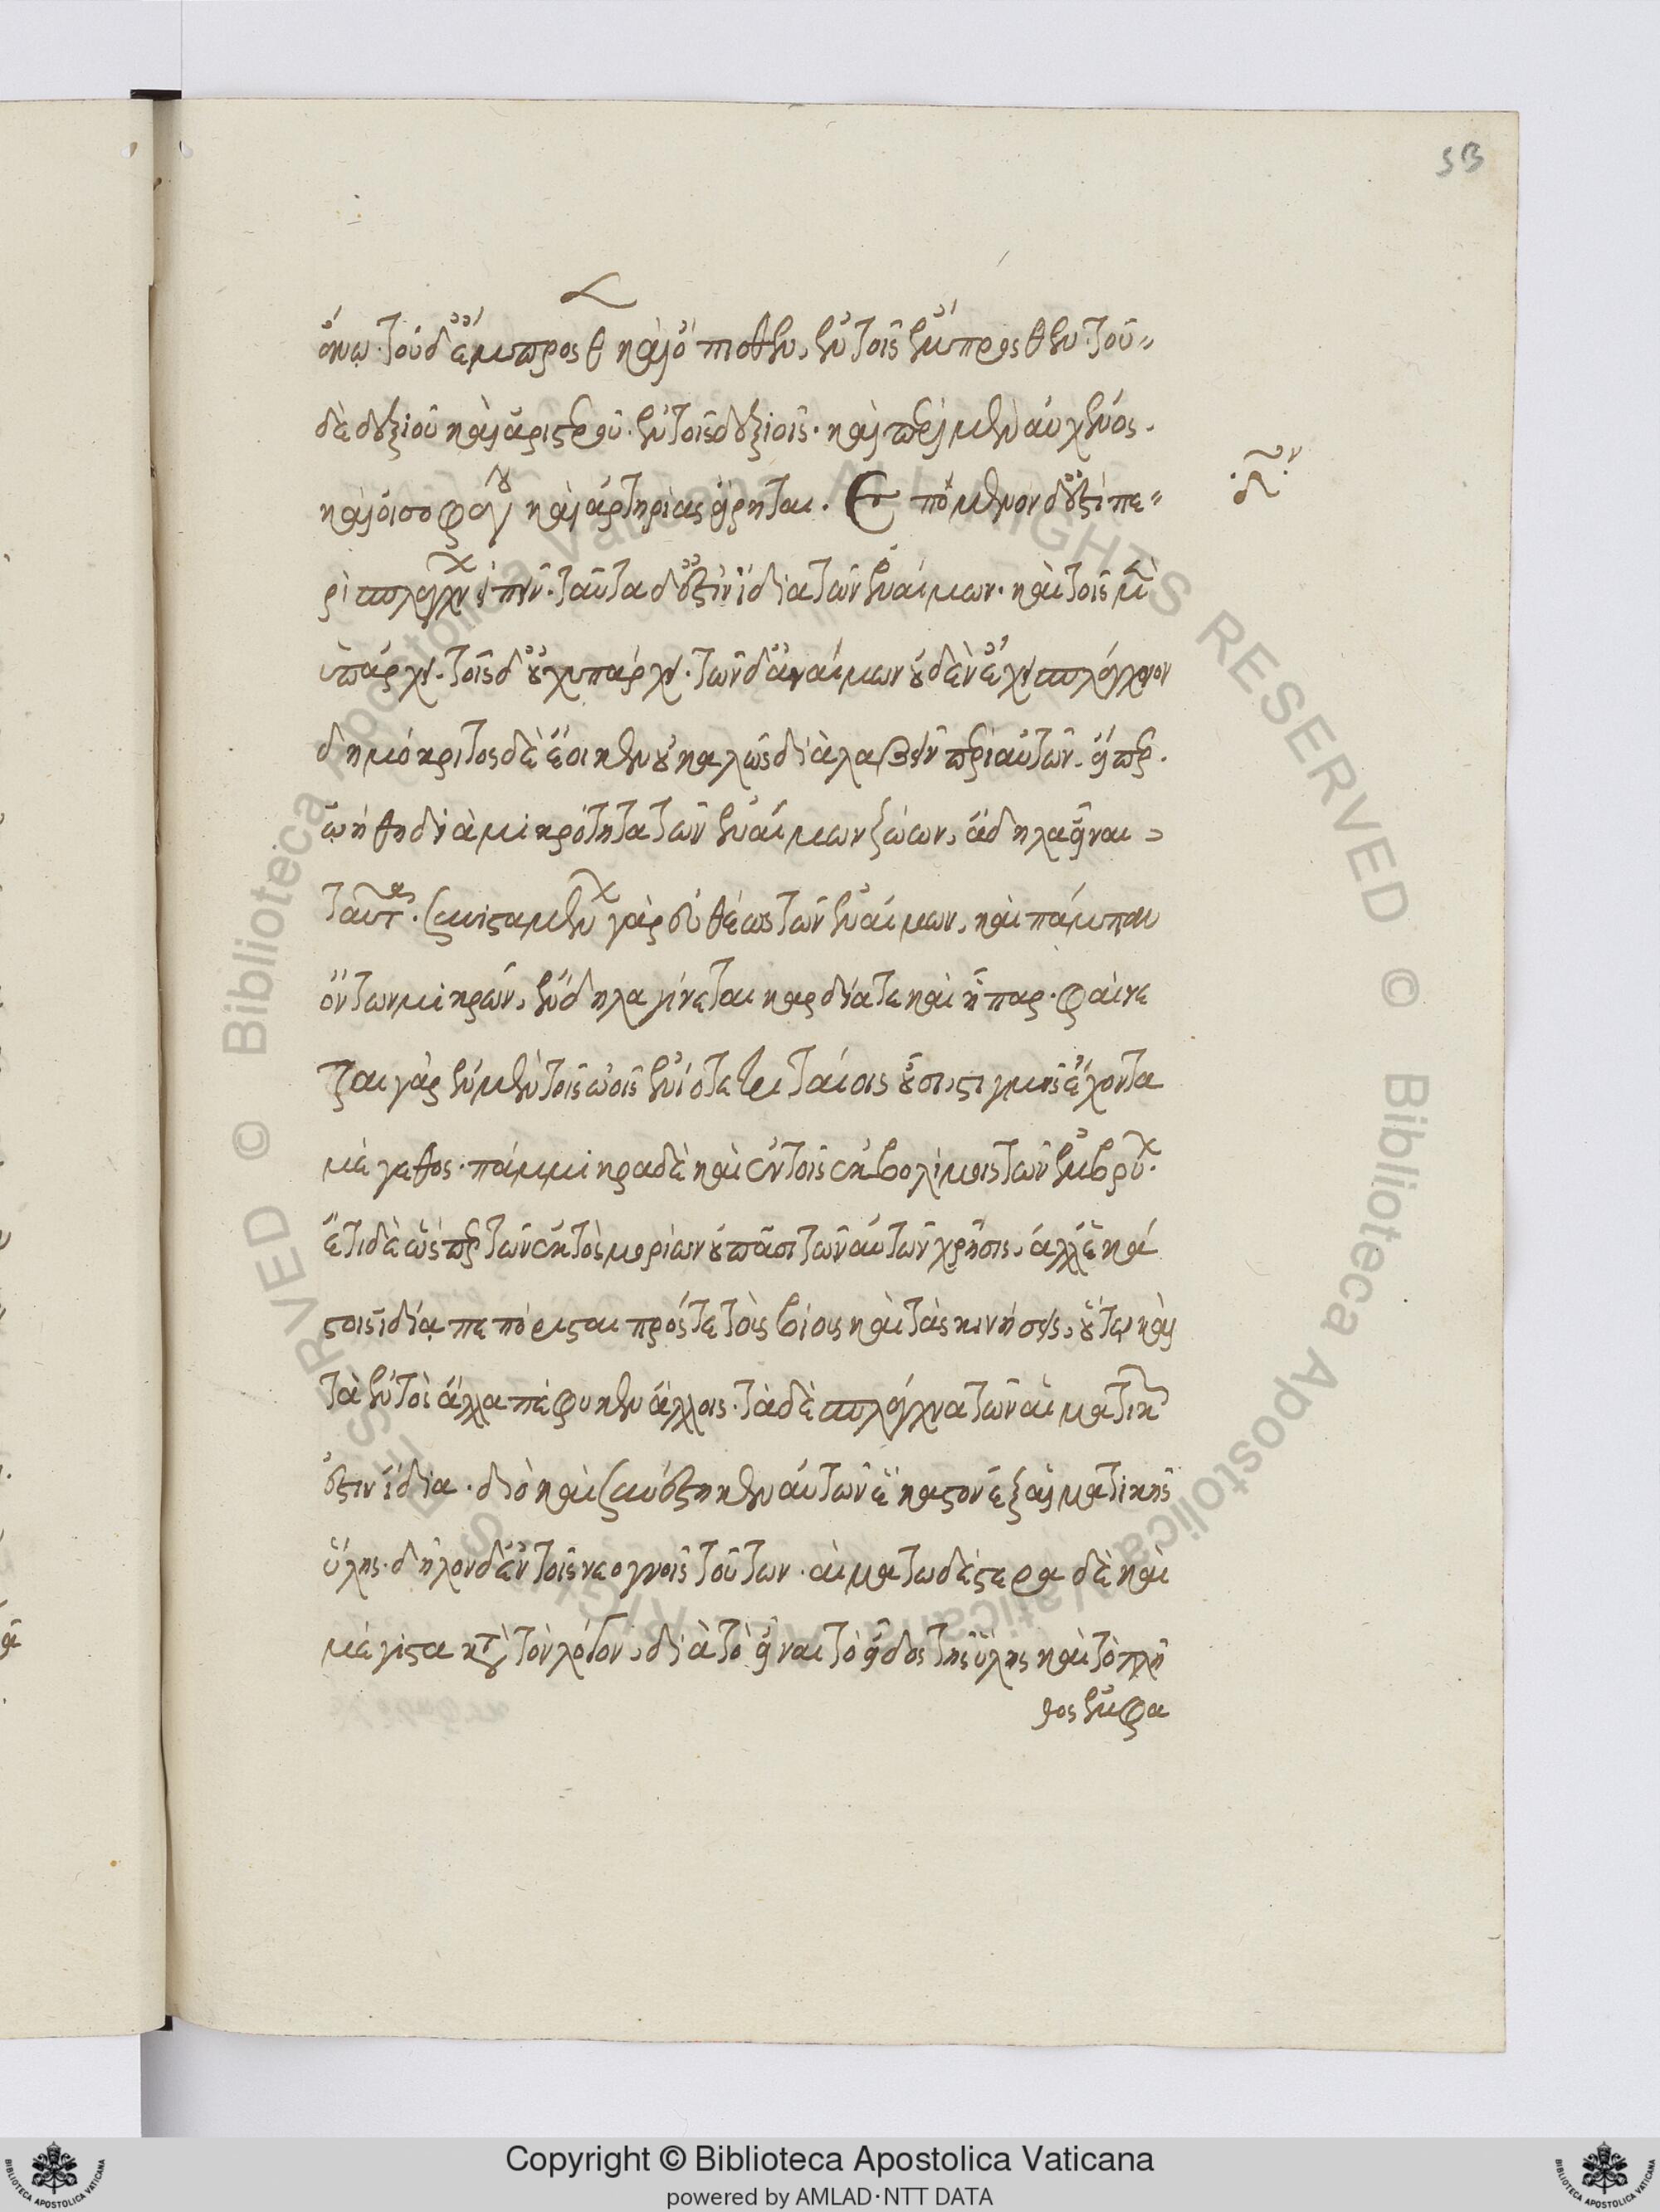 53
ἄνω· τοῦ δ' ἔμπροσθ καὶ ὄπισθεν, ἐν τοῖς ἔμπροσθεν· τοῦ
δὲ δεξιοῦ καὶ ἀριστεροῦ. ἐν τοῖς δεξιοῖς· καὶ περὶ μὲν αὐχένος.
καὶ οἰσοφάγου καὶ ἀρτηρίας εἴρηται. Ἑπόμενον δ' ἐστὶ πε
ρὶ σπλάγχν εἰπεῖν. ταῦτα δ' ἐστὶν ἴδια τῶν ἐναίμων. καὶ τοῖς μὲν
ὑπάρχει. τοῖς δ' οὐχ ὑπάρχει. τῶν δ' ἀναίμων οὐδὲν ἔχει σπλάγχνον
δημόκριτος δὲ ἔοικεν οὐ καλῶς διαλαβεῖν περὶ αὐτῶν. εἴπερ.
ᾠήθη διὰ μικρότητα τῶν ἐναίμων ζώων, ἄδηλα εἶναι
ταῦτα. συνισταμένων γὰρ εὐθέως τῶν ἐναίμων, καὶ πάμπαν
ὄντων μικρῶν, ἔνδηλα γίνεται καρδία τε καὶ ἧπαρ. φαίνε
ται γὰρ ἐν μὲν τοῖς ὠοῖς ἐνίοτε τριταίοις οὖσι, στιγμῆς ἔχοντα
μέγεθος. πάμμικρα δὲ καὶ ἐν τοῖς ἐκβολίμοις τῶν ἐμβρύων.
ἔτι δὲ ὥσπερ τῶν ἐκτὸς μορίων οὐ πᾶσι τῶν αὐτῶν χρῆσις, ἀλλ' ἑκά
στοις ἰδίᾳ πεπόρισται πρός τε τοὺς βίους καὶ τὰς κινήσεις, οὕτω καὶ
τὰ ἐντὸς ἄλλα πέφυκεν ἄλλοις. τὰ δὲ σπλάγχνα τῶν αἱματικῶν
ἐστιν ἴδια. διὸ καὶ συνέστηκεν αὐτῶν ἕκαστον ἐξ αἱματικῆς
ὕλης. δῆλον δ' ἐν τοῖς νεογνοῖς τούτων. αἱματωδέστερα δὲ καὶ
μέγιστα κατὰ τὸν λόγον, διὰ τὸ εἶναι τὸ εἶδος τῆς ὕλης καὶ τὸ πλῆ
θος ἐμφα